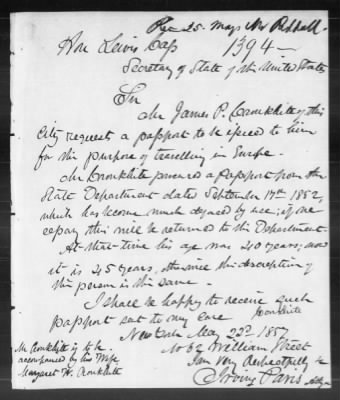 Rec 25. May
Hon Lewis Cass 1394 —
Secretary of State of the United States
Sir
Mr James P. Cronkhite of this
City requests a passport to be issued to him
for the purpose of travelling in Europe.
Mr Cronkhite procured a Passport from the
State Department dated September 17th 1852,
which has become much defaced by use; if one
this will be returned to the Department.
At that time his age was 40 years; now
it is 45 years, otherwise the description of
his person is the same.
I shall be happy to receive such
passport sent to my care
Cronkhite
New York May 22d 1857
No 62 William Street
I am Very Respectfully
Irving Paris
Mr Cronkhite is to be
accompanied by his Wife
Margaret W. Cronkhite